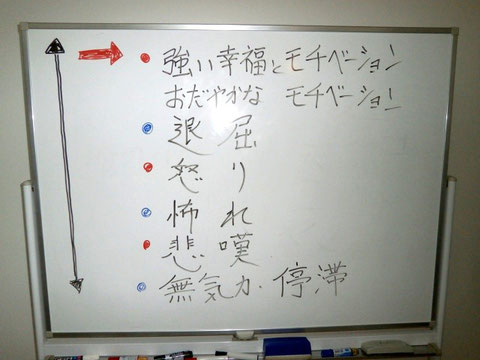 強い幸福とモチベーション
おだやかな モチベーション
退屈
怒り
怖れ
悲嘆
無気力・停滞